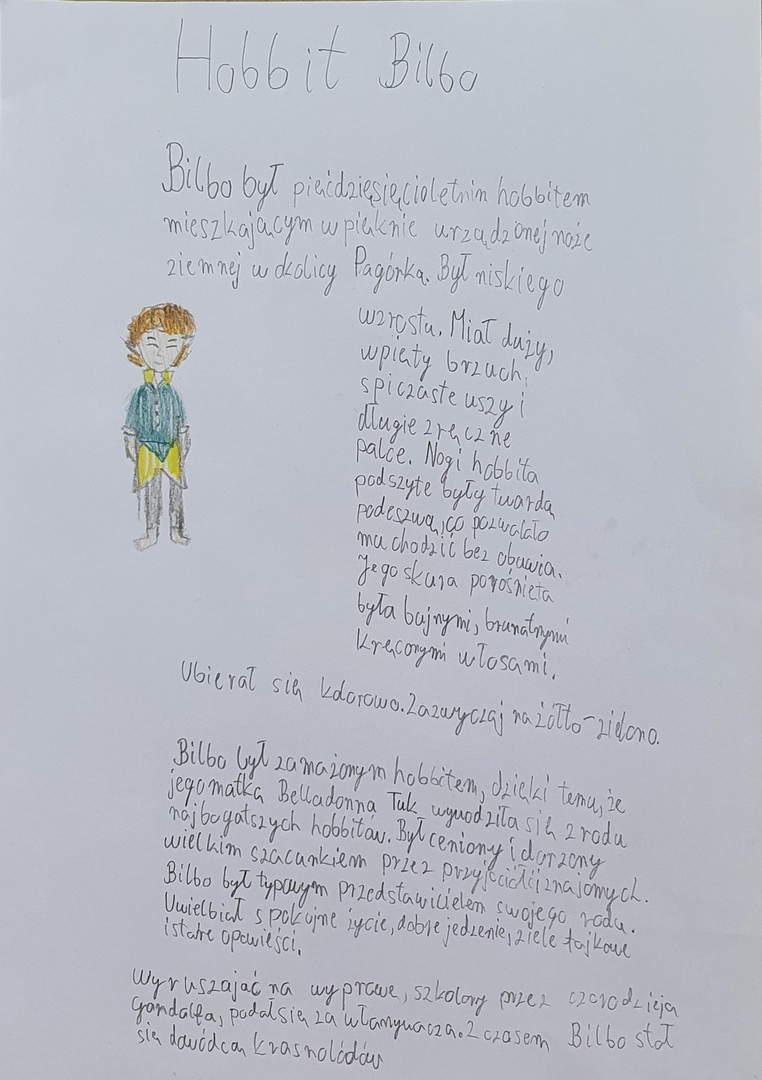 Hobbit Bilbo
Bilbo był pięćdziesięcioletnim hobbitem
mieszkającym w pięknie urządzonej noże
ziemnej w okolicy Pagórka. Był niskiego
wzrostu. Miał duży,
wpięty brzuch,
spiczaste uszy i
długie zręczne
palce. Nogi hobbita
podszyte były twardą
podeszwą, co pozwalało
mu chodzić bez obuwia.
Jego skura porośnięta
była bujnymi, brunatnymi
kręconymi włosami.
Ubierał się kolorowo. Zazwyczaj na żółto-zielono.
Bilbo był zamażonym hobbitem, dzięki temu, że
jego matka Belladonna Tuk wywodziła się z rodu
najbogatszych hobbitów. Był ceniony i dorzony
wielkim szacunkiem przez przyjaciół i znajomych.
Bilbo był typowym przedstawicielem swojego rodu.
Uwielbiał spokojne życie, dobre jedzenie, ziele fajkowe
i stare opowieści.
Wyruszając na wyprawę, szkolony przez czarodzieja
Gandalfa, podał się za włamywacza. Z czasem Bilbo stał
się dowódcą krasnoludów